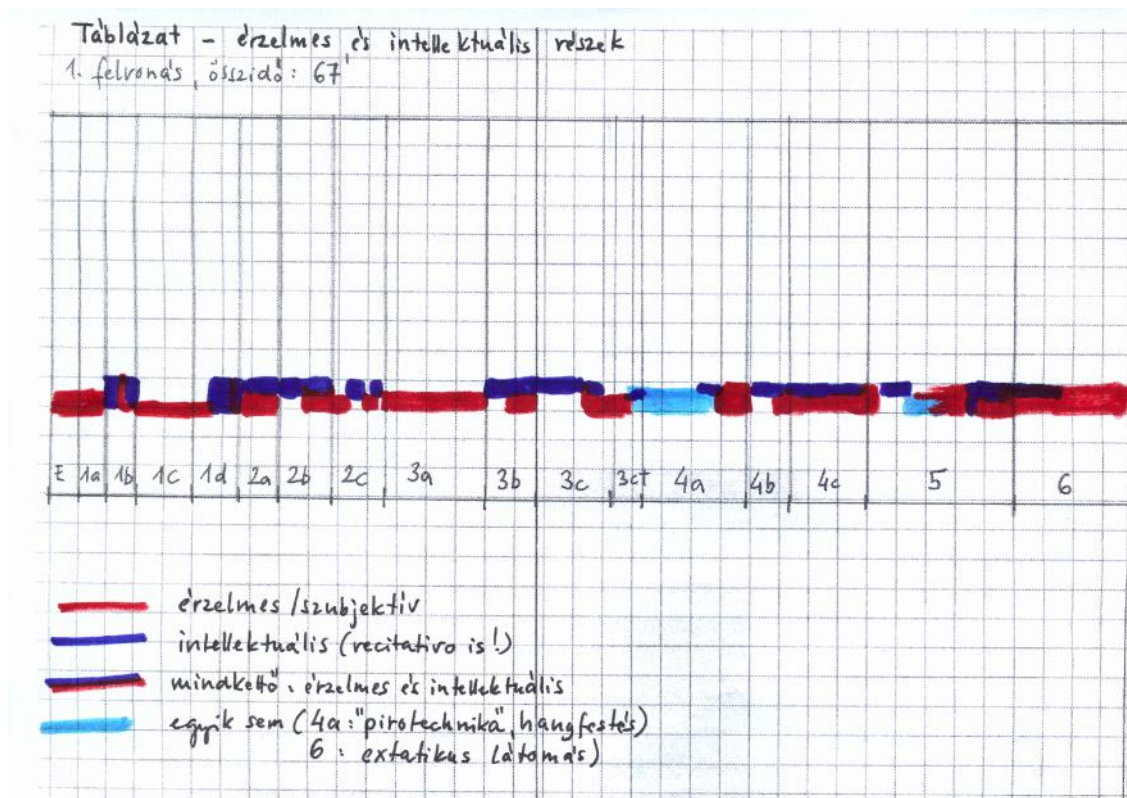 Táblázat – érzelmes és intellektuális részek
1. felvonás, összidő: 67'
E 1a 1b 1c 1d 2a 2b 2c 3a 3b 3c 3cT 4a 4b 4c 5 6
érzelmes/szubjektív
intellektuális (recitativo is!)
mindkettő: érzelmes és intellektuális
egyik sem (4a: "pirotechnika", hangfestés)
6: extatikus látomás)